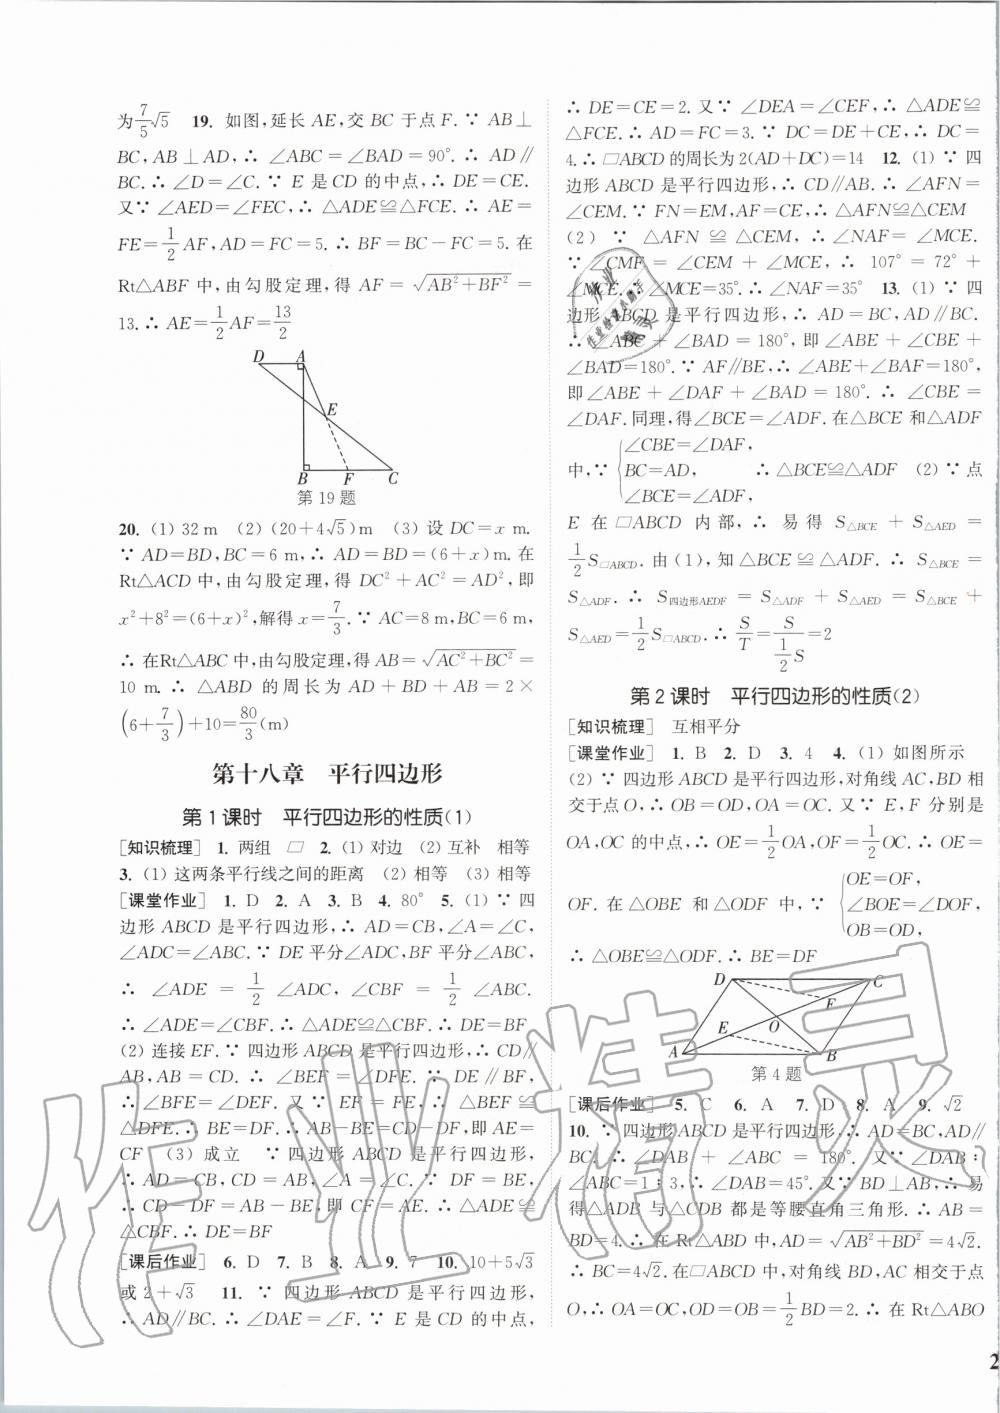 为7/5√5　19. 如图,延长AE,交BC于点F.∵ AB⊥
BC,AB⊥AD,∴ ∠ABC=∠BAD=90°.∴ AD∥
BC.∴ ∠D=∠C.∵ E是CD的中点,∴ DE=CE.
又∵ ∠AED=∠FEC,∴ △ADE≌△FCE.∴ AE=
FE=1/2AF,AD=FC=5.∴ BF=BC-FC=5.在
Rt△ABF中,由勾股定理,得AF=√(AB²+BF²)=
13.∴ AE=1/2AF=13/2
D A
E
B F C
第19题
20. (1) 32 m　(2) (20+4√5)m　(3) 设DC=x m.
∵ AD=BD,BC=6 m,∴ AD=BD=(6+x)m.在
Rt△ACD中,由勾股定理,得DC²+AC²=AD²,即
x²+8²=(6+x)²,解得x=7/3.∵ AC=8 m,BC=6 m,
∴ 在Rt△ABC中,由勾股定理,得AB=√(AC²+BC²)=
10 m.∴ △ABD的周长为AD+BD+AB=2×
(6+7/3)+10=80/3(m)
第十八章　平行四边形
第1课时　平行四边形的性质(1)
[知识梳理]　1. 两组　▱　2. (1) 对边　(2) 互补　相等
3. (1) 这两条平行线之间的距离　(2) 相等　(3) 相等
[课堂作业]　1. D　2. A　3. B　4. 80°　5. (1) ∵ 四
边形ABCD是平行四边形,∴ AD=CB,∠A=∠C,
∠ADC=∠ABC.∵ DE平分∠ADC,BF平分∠ABC,
∴ ∠ADE=1/2∠ADC,∠CBF=1/2∠ABC.
∴ ∠ADE=∠CBF.∴ △ADE≌△CBF.∴ DE=BF
(2) 连接EF.∵ 四边形ABCD是平行四边形,∴ CD∥
AB,AB=CD.∴ ∠BFE=∠DEF.∵ DE∥BF,
∴ ∠BFE=∠DEF.又∵ EF=FE,∴ △BEF≌
△DFE.∴ BE=DF.∴ AB-BE=CD-DF,即AE=
CF　(3) 成立　∵ 四边形ABCD是平行四边形,
∴ AD=CB,AB=CD,∠A=∠C.∵ DF=BE,
∴ CD-DF=AB-BE,即CF=AE.∴ △ADE≌
△CBF.∴ DE=BF
[课后作业]　6. D　7. B　8. A　9. 7　10. 10+5√3
或2+√3　11. ∵ 四边形ABCD是平行四边形,
∴ AD∥BC.∴ ∠DAE=∠F.∵ E是CD的中点,
∴ DE=CE=2.又∵ ∠DEA=∠CEF,∴ △ADE≌
△FCE.∴ AD=FC=3.∵ DC=DE+CE,∴ DC=
4.∴ ▱ABCD的周长为2(AD+DC)=14　12. (1) ∵ 四
边形ABCD是平行四边形,∴ CD∥AB.∴ ∠AFN=
∠CEM.∵ FN=EM,AF=CE,∴ △AFN≌△CEM
(2) ∵ △AFN≌△CEM,∴ ∠NAF=∠MCE.
∵ ∠CMF=∠CEM+∠MCE,∴ 107°=72°+
∠MCE.∴ ∠MCE=35°.∴ ∠NAF=35°　13. (1) ∵ 四
边形ABCD是平行四边形,∴ AD=BC,AD∥BC.
∴ ∠ABC+∠BAD=180°,即∠ABE+∠CBE+
∠BAD=180°.∵ AF∥BE,∴ ∠ABE+∠BAF=180°,
即∠ABE+∠DAF+∠BAD=180°.∴ ∠CBE=
∠DAF.同理,得∠BCE=∠ADF.在△BCE和△ADF
∠CBE=∠DAF,
中,∵ BC=AD,　∴ △BCE≌△ADF　(2) ∵ 点
∠BCE=∠ADF,
E在▱ABCD内部,∴ 易得S△BCE+S△AED=
1/2S▱ABCD.由(1),知△BCE≌△ADF.∴ S△BCE=
S△ADF.∴ S四边形AEDF=S△ADF+S△AED=S△BCE+
S△AED=1/2S▱ABCD.∴ S/T=S/(1/2S)=2
第2课时　平行四边形的性质(2)
[知识梳理]　互相平分
[课堂作业]　1. B　2. D　3. 4　4. (1) 如图所示
(2) ∵ 四边形ABCD是平行四边形,对角线AC,BD相
交于点O,∴ OB=OD,OA=OC.又∵ E,F分别是
OA,OC的中点,∴ OE=1/2OA,OF=1/2OC.∴ OE=
OE=OF,
OF.在△OBE和△ODF中,∵ ∠BOE=∠DOF,
OB=OD,
∴ △OBE≌△ODF.∴ BE=DF
D C
F
E O
A B
第4题
[课后作业]　5. C　6. A　7. D　8. A　9. √2
10. ∵ 四边形ABCD是平行四边形,∴ AD=BC,AD∥
BC.∴ ∠DAB+∠ABC=180°.又∵ ∠DAB∶
∠ABC=1∶3,∴ ∠DAB=45°.又∵ BD⊥AB,∴ 易
得△ADB与△CDB都是等腰直角三角形.∴ AB=
BD=4.∴ 在Rt△ABD中,AD=√(AB²+BD²)=4√2.
∴ BC=4√2.在▱ABCD中,对角线BD,AC相交于点
O,∴ OA=OC,OD=OB=1/2BD=2.∴ 在Rt△ABO
2
作业精灵